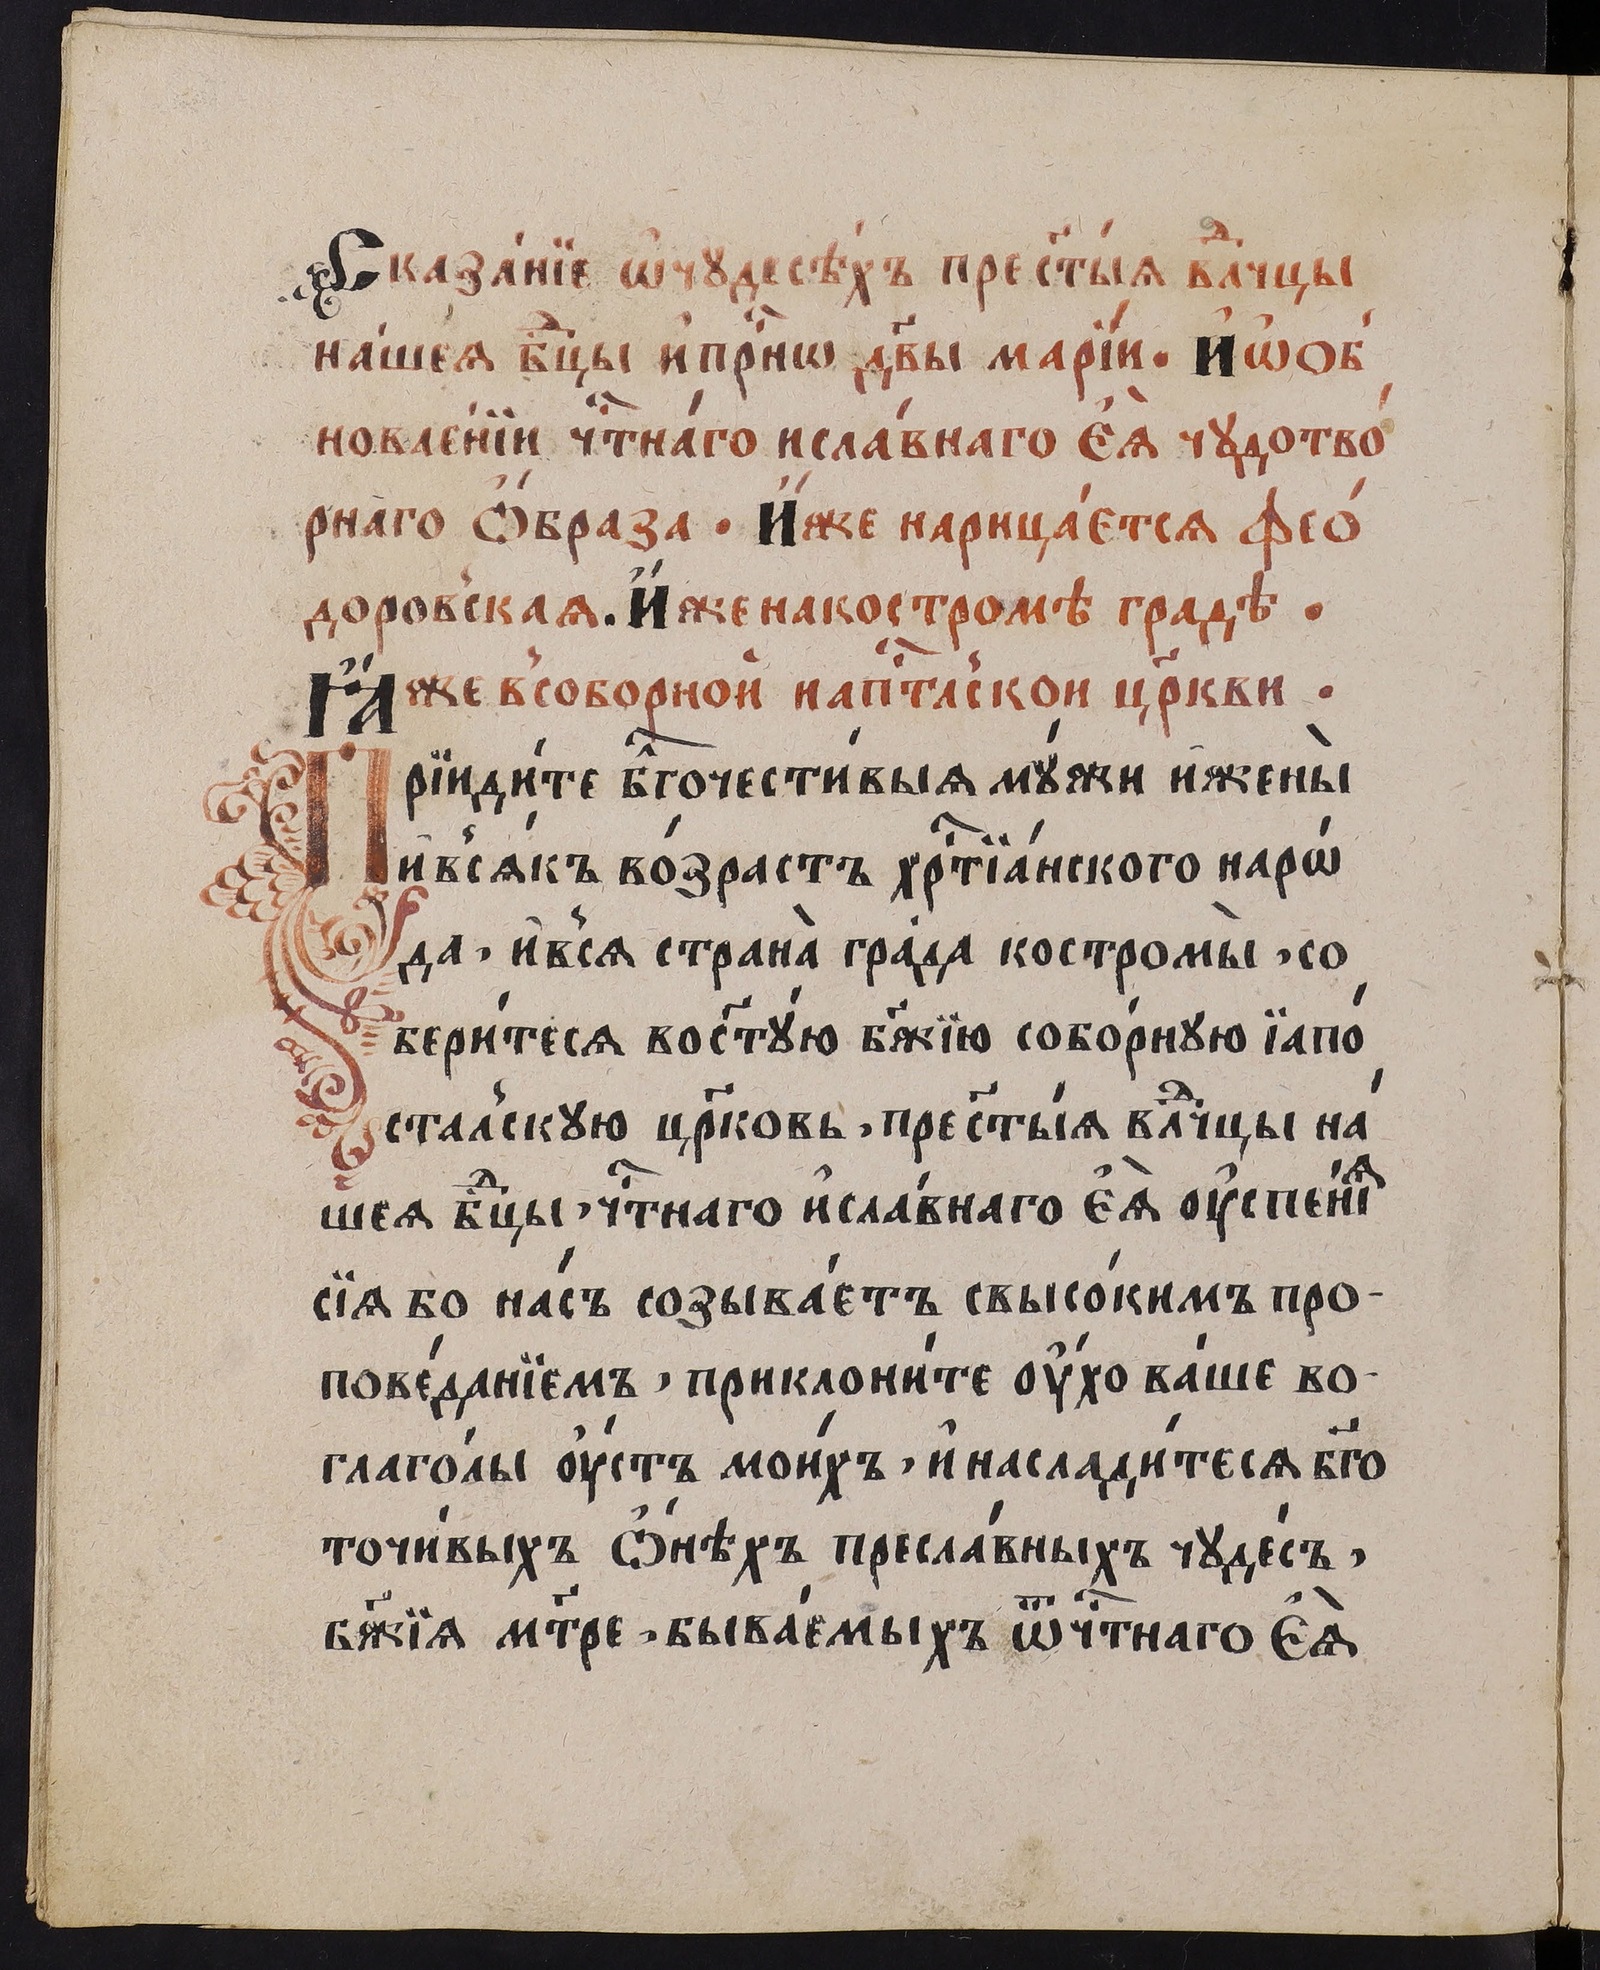 Сказа́нїе ѡ҆чꙋдесѣ́хъ прест҃ы́ѧ влⷣчцы
на́шеѧ бцⷣы и҆прⷭ҇нѡ дв҃ы марі́и. И҆ѡ҆об
новле́нїи чтⷭ҇на́го исла́внаго Є҆ѧ̀ чꙋдотво́
рнаго Ѻ҆́браза. И҆́же нарица́єтсѧ фео́
доровскаѧ. И҆́же накостромѣ градѣ.
Ꙗ҆́же всоборной иапⷭ҇тлской цр҃кви.
Прїиди́те бл҃гочести́выѧ мꙋ́жи и҆жены̀
и҆всѧ́къ во́зрастъ хрⷭ҇тїа́нского нарѡ́
да, и҆всѧ страна̀ гра́да костромы̀, со
бери́тесѧ вост҃ꙋ́ю бж҃їю собо́рнꙋю їапо́
сталскꙋю цр҃ковь, прест҃ы́ѧ влⷣчцы на́
шеѧ бцⷣы, чтⷭ҇наго и҆сла́внаго Є҆ѧ̀ оу҆спе́нїѧ
сїѧ бо на́съ созыва́етъ свысо́кимъ про-
пове́данїемъ, приклони́те оу҆́хо ва́ше во-
глаго́лы оу҆́стъ мои́хъ, и҆наслади́тесѧ бл҃го
точи́выхъ Ѻ҆́нѣхъ пресла́вныхъ чꙋде́съ,
бж҃їѧ мт҃ре, быва́емыхъ ѿчтⷭ҇наго Є҆ѧ̀